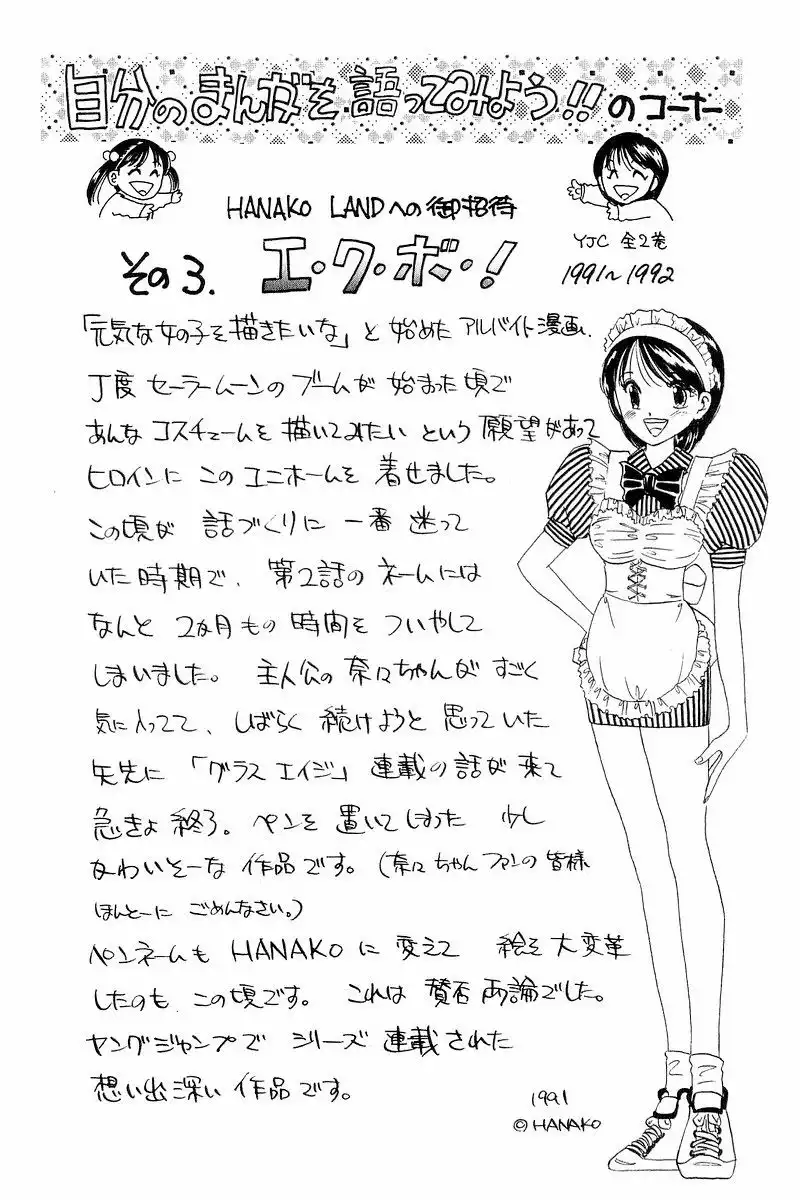 自分のまんがを語ってみよう!!のコーナー
HANAKO LANDへの御招待
その3. エ・ク・ボ・!
YJC 全2巻
1991〜1992
「元気な女の子を描きたいな」と始めたアルバイト漫画、
丁度セーラームーンのブームが始まった頃で
あんなコスチュームを描いてみたいという願望があって
ヒロインにこのユニホームを着せました。
この頃が話づくりに一番迷って
いた時期で、第2話のネームには
なんと2ヵ月もの時間をついやして
しまいました。主人公の奈々ちゃんがすごく
気に入ってて、しばらく続けようと思っていた
矢先に「グラスエイジ」連載の話が来て
急きょ終了。ペンを置いてしまった少し
かわいそーな作品です。(奈々ちゃんファンの皆様
ほんとーにごめんなさい。)
ペンネームもHANAKOに変えて絵を大変革
したのもこの頃です。これは賛否両論でした。
ヤングジャンプでシリーズ連載された
想い出深い作品です。
1991
©HANAKO